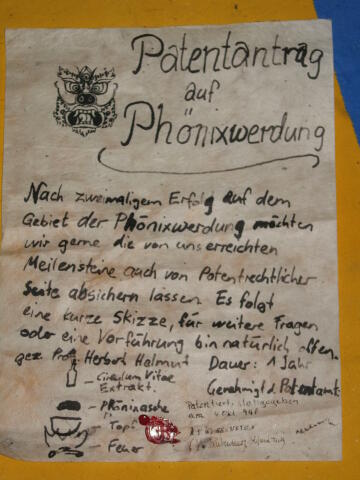 Patentantrag
auf
Phönixwerdung
Nach zweimaligem Erfolg auf dem
Gebiet der Phönixwerdung möchten
wir gerne die von uns erreichten
Meilensteine auch von Patentrechtlicher
Seite absichern lassen. Es folgt
eine kurze Skizze, für weitere Fragen
oder eine Vorführung bin natürlich offen.
gez. Prof. Herbert Halmut
Dauer: 1 Jahr
Circulum Vitae
Extrakt.
Genehmigt d. Patentamt
Phönixasche
Patentiert, stattgegeben
am
Topf
Feuer